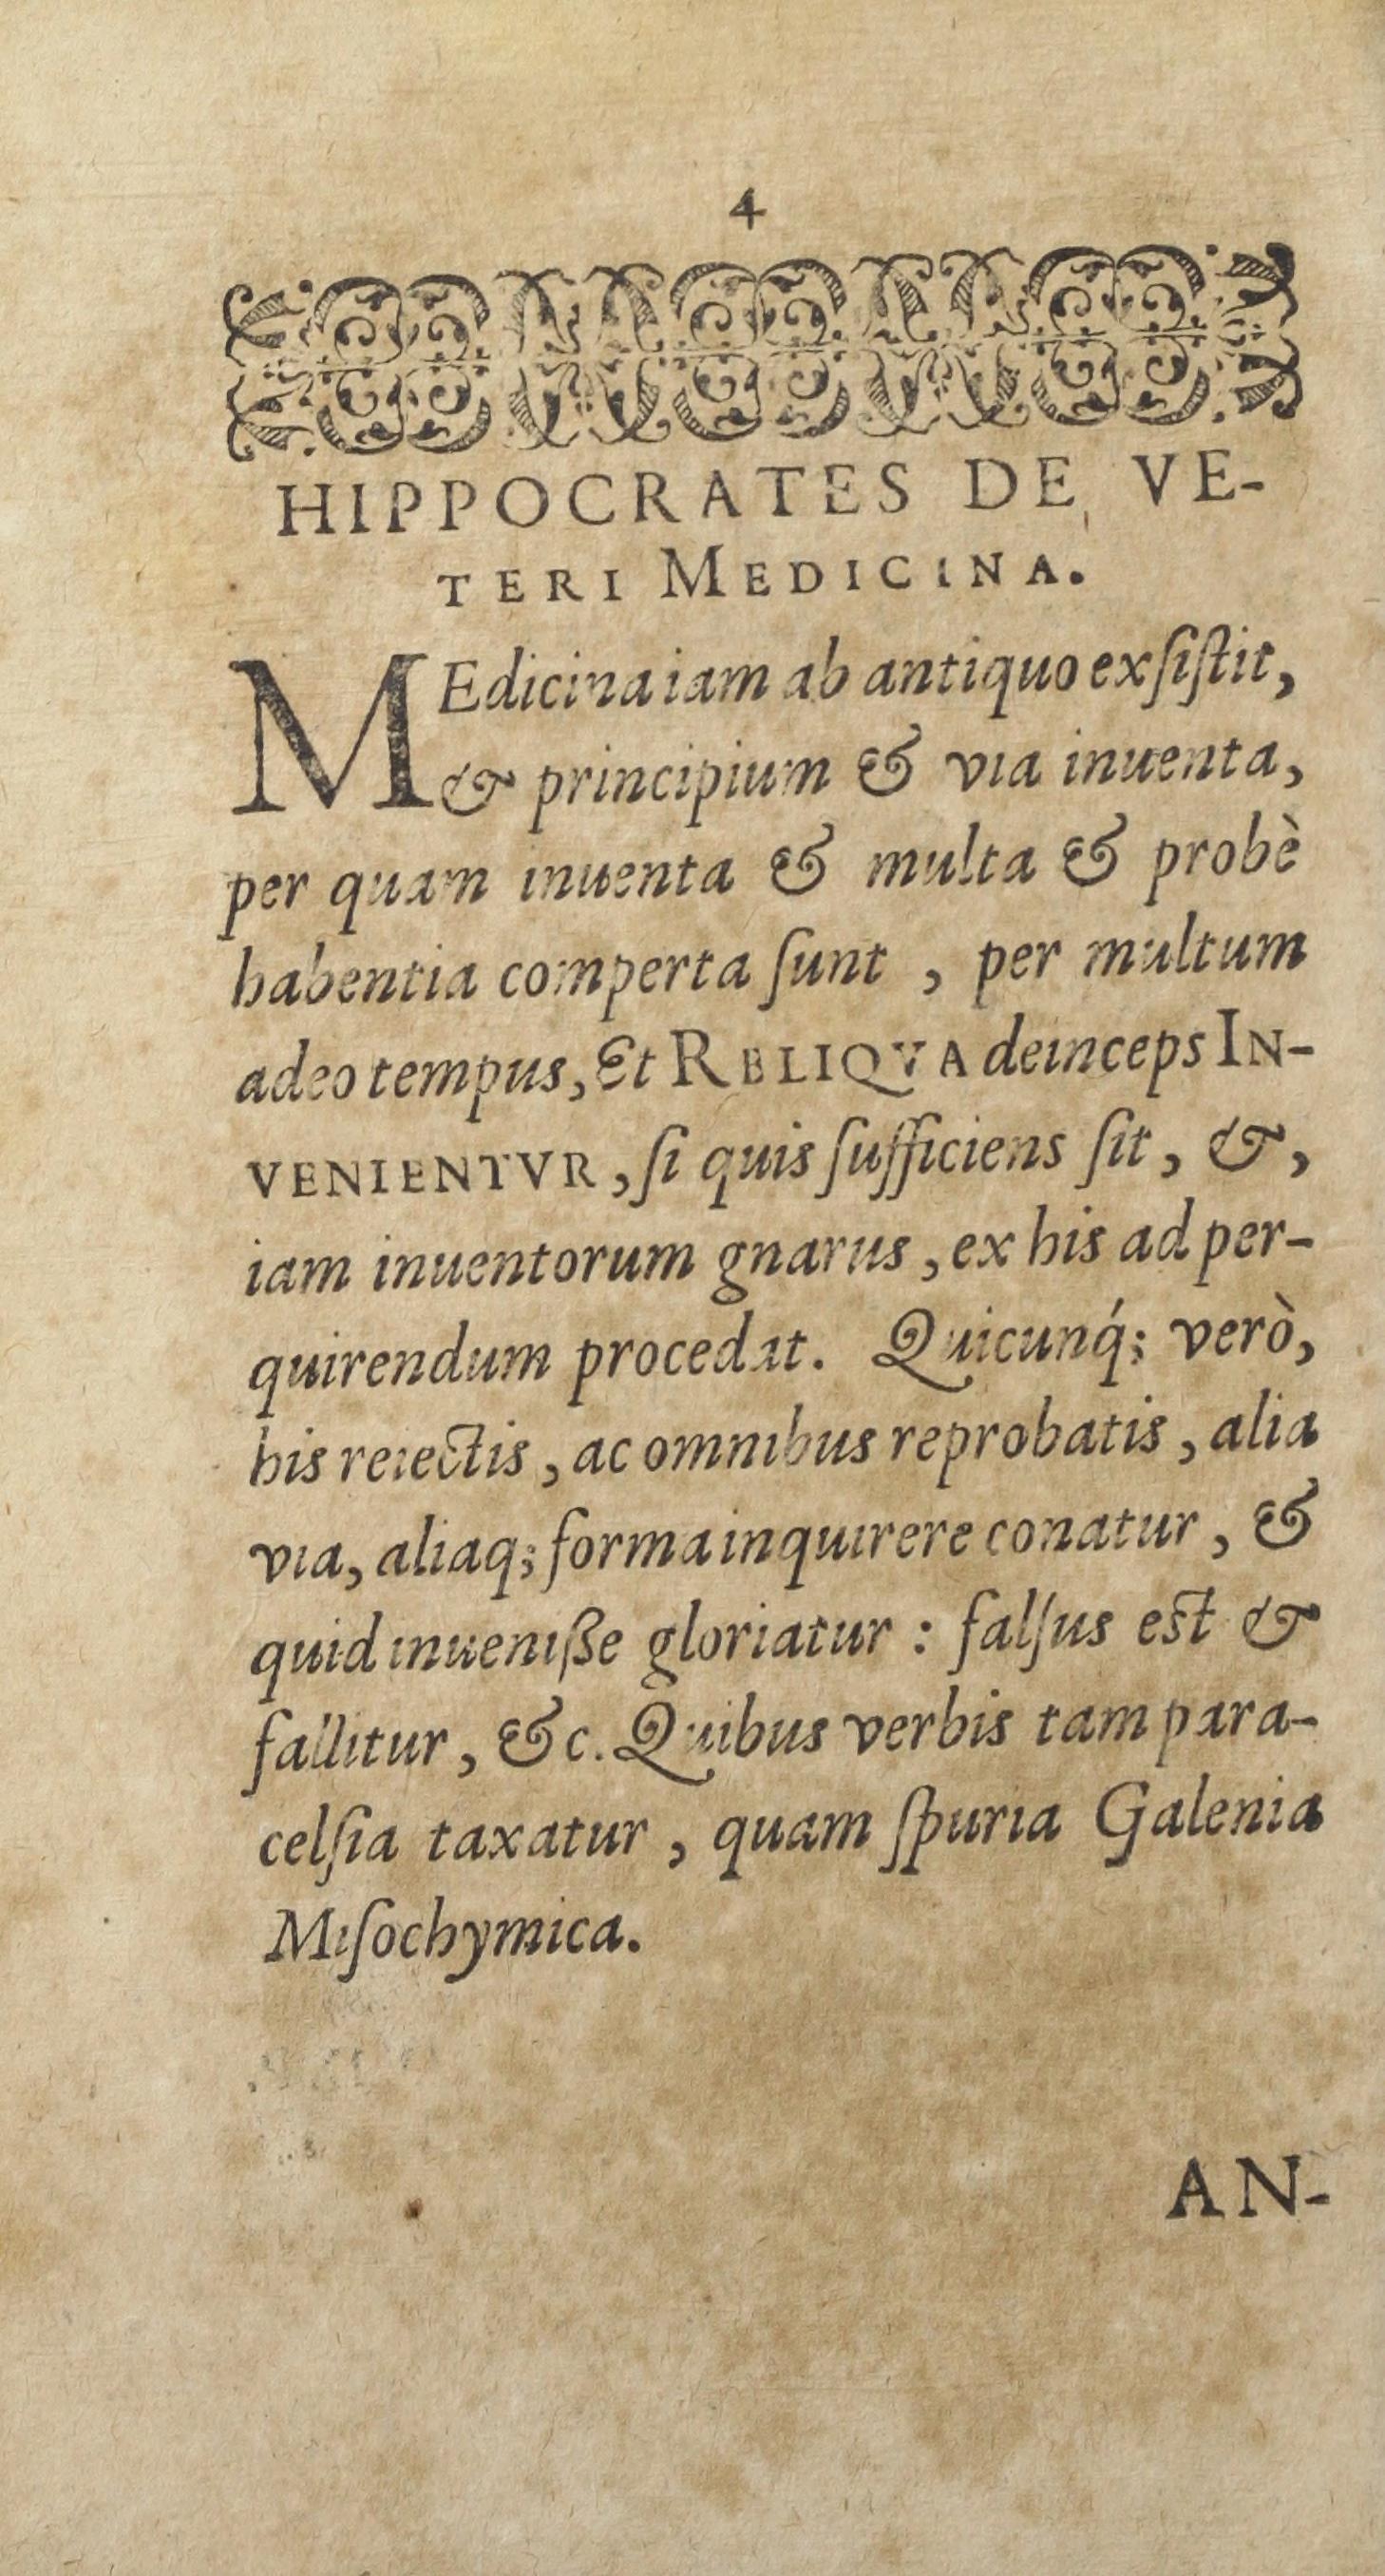 4
HIPPOCRATES DE VE-
TERI MEDICINA.
MEdicina iam ab antiquo exſiſtit,
& principium & via inuenta,
per quam inuenta & multa & probè
habentia comperta ſunt , per multum
adeo tempus, Et RELIQVA deinceps IN-
VENIENTVR, ſi quis ſufficiens ſit, &,
iam inuentorum gnarus, ex his ad per-
quirendum procedat. Quicunq́; verò,
his reiectis, ac omnibus reprobatis, alia
via, aliaq; forma inquirere conatur, &
quid inueniße gloriatur : falſus est &
fallitur, &c. Quibus verbis tam para-
celſia taxatur, quam ſpuria Galenia
Miſochymica.
AN-